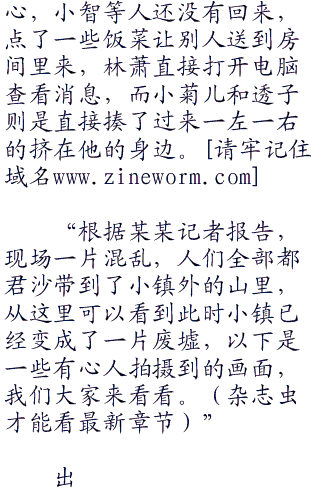 心，小智等人还没有回来，
点了一些饭菜让别人送到房
间里来，林萧直接打开电脑
查看消息，而小菊儿和透子
则是直接揍了过来一左一右
的挤在他的身边。[请牢记住
域名www.zineworm.com]
“根据某某记者报告，
现场一片混乱，人们全部都
君沙带到了小镇外的山里，
从这里可以看到此时小镇已
经变成了一片废墟，以下是
一些有心人拍摄到的画面，
我们大家来看看。（杂志虫
才能看最新章节）”
出